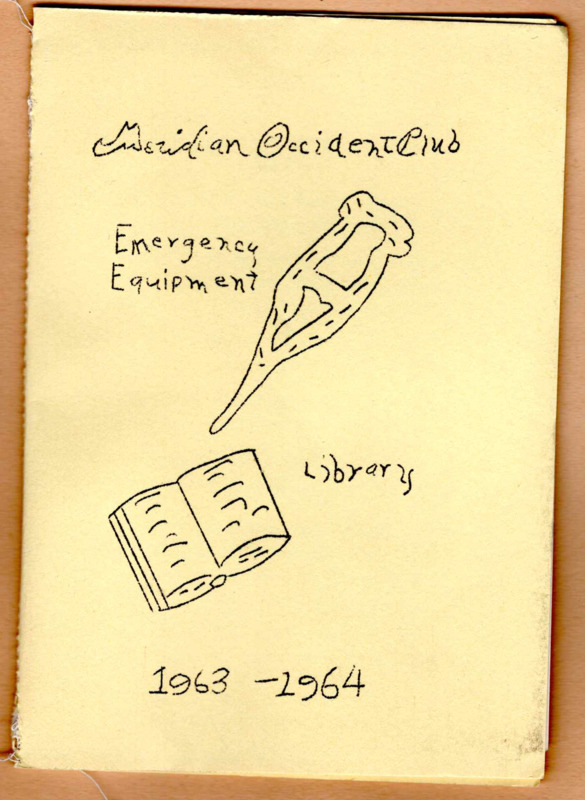 Meridian Occident Club
Emergency
Equipment
Library
1963 - 1964